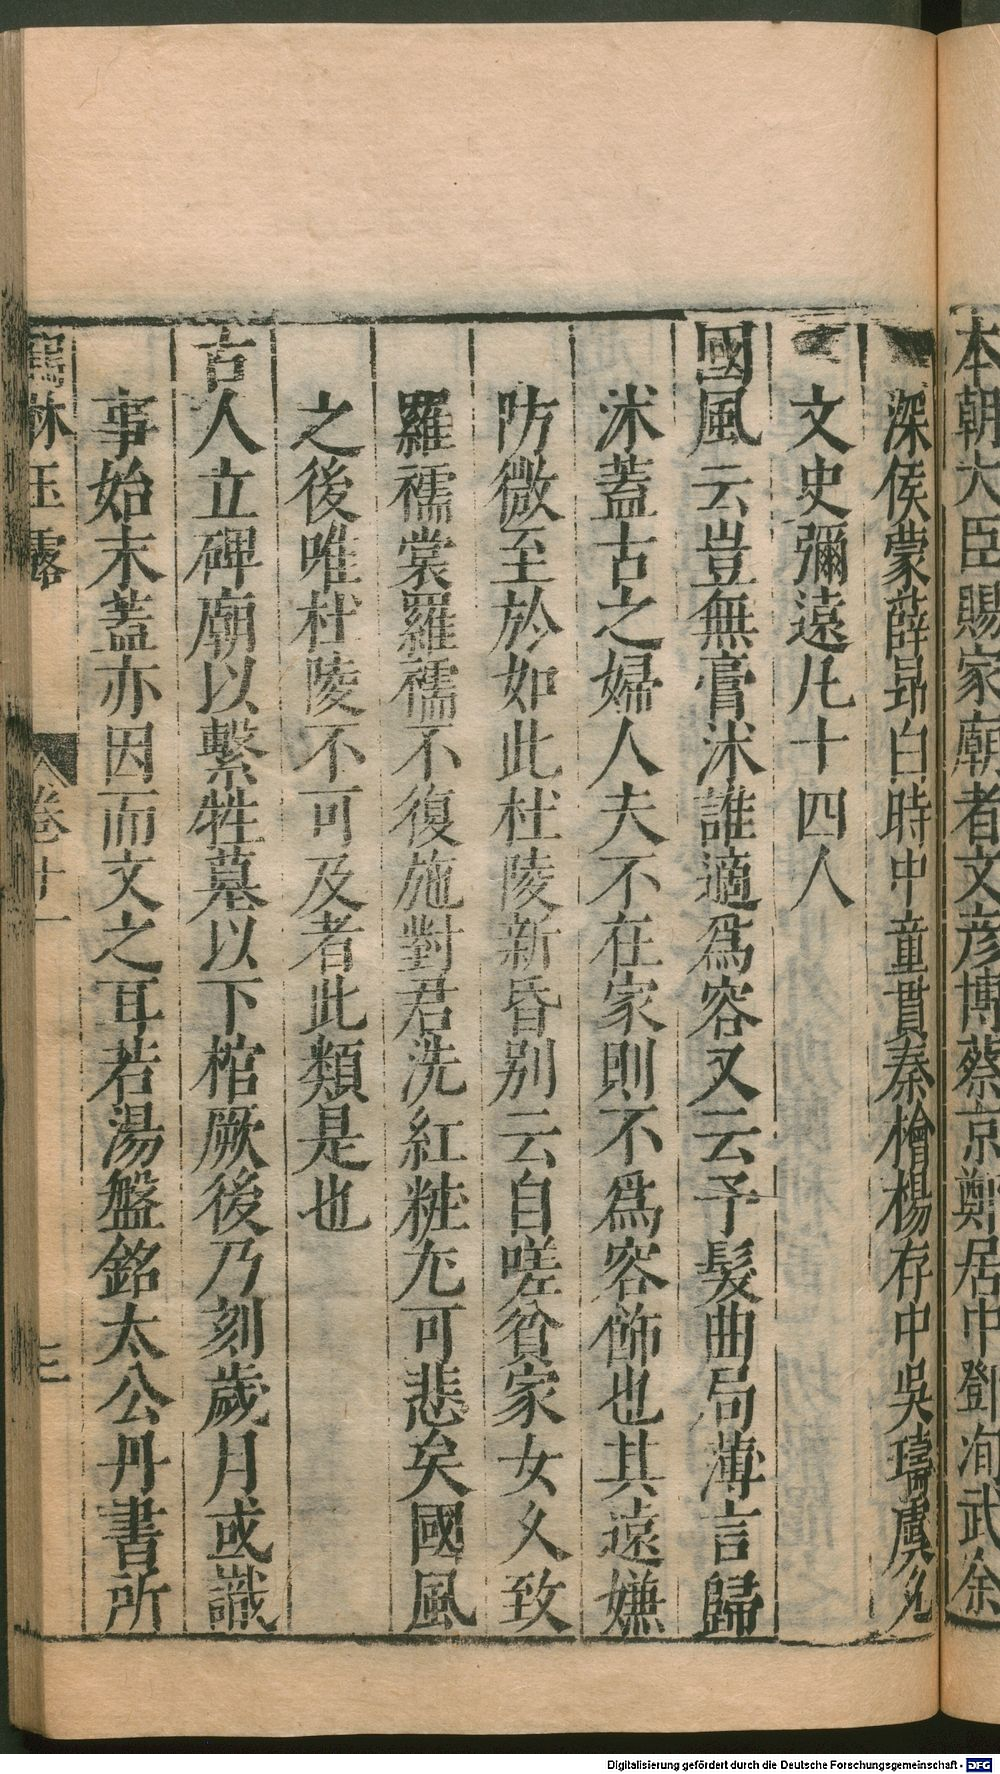 本朝大臣賜家廟者文彥博蔡京鄭居中鄧洵武余
深侯蒙薛昻白時中童貫秦檜楊存中吳璘虞允
文史彌遠凡十四人
國風云豈無膏沐誰適爲容又云予髮曲局薄言歸
沐蓋古之婦人夫不在家則不爲容飾也其遠嫌
防微至於如此杜陵新昏别云自嗟貧家女久致
羅襦裳羅襦不復施對君洗紅粧尤可悲矣國風
之後唯杜陵不可及者此類是也
古人立碑廟以繫牲墓以下棺厥後乃刻歲月或識
事始末蓋亦因而文之耳若湯盤銘太公丹書所
霍林玉露 卷十一 三
Digitalisierung gefördert durch die Deutsche Forschungsgemeinschaft - DFG